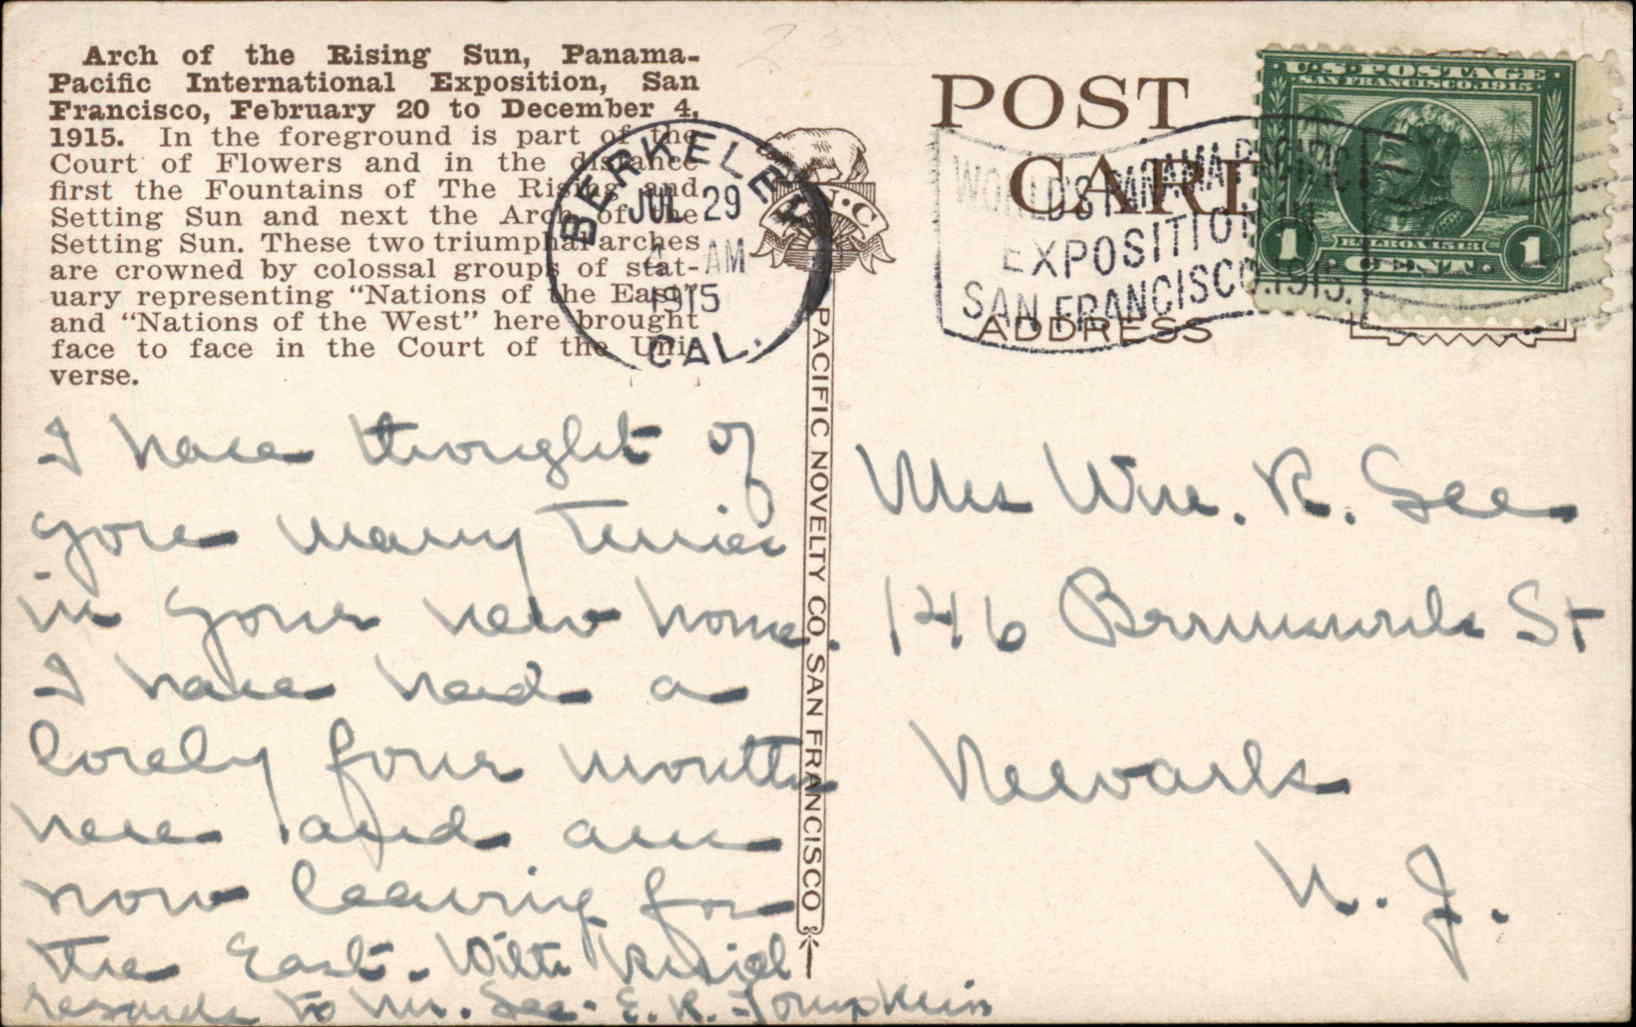 Arch of the Rising Sun, Panama-
Pacific International Exposition, San
Francisco, February 20 to December 4,
1915. In the foreground is part of the
Court of Flowers and in the distance
first the Fountains of The Rising and
Setting Sun and next the Arch of the
Setting Sun. These two triumphal arches
are crowned by colossal groups of stat-
uary representing "Nations of the East"
and "Nations of the West" here brought
face to face in the Court of the Uni-
verse.
BERKELEY
JUL 29
AM
1915
CAL.
P.N.C.
POST
CARD
WORLD'S PANAMA-PACIFIC
EXPOSITION IN
SAN FRANCISCO. 1915.
ADDRESS
U.S. POSTAGE
SAN FRANCISCO 1915
BALBOA 1513
1 CENT 1
PACIFIC NOVELTY CO. SAN FRANCISCO
I have thought of
you many times
in your new home.
I have had a
lovely four months
here and am
now leaving for
the East. With kind
regards to Mr. See. E. R. Tompkins
Mrs Wm. R. See
146 Brunswick St
Newark
N. J.